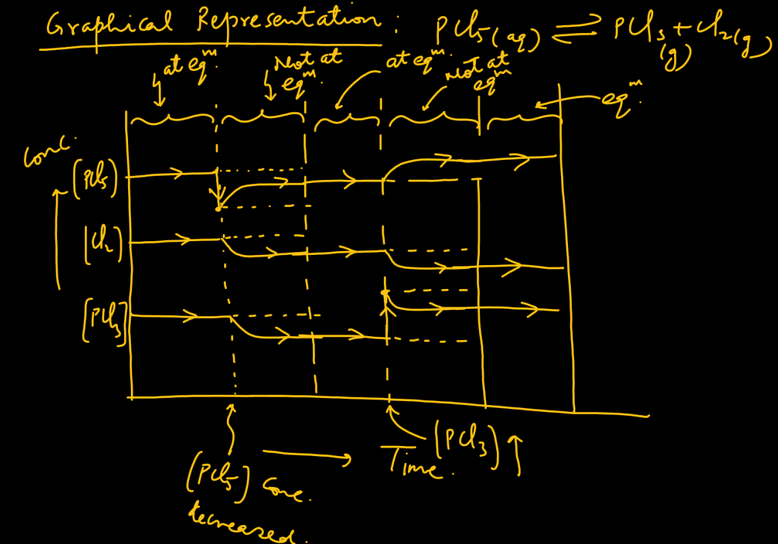 Graphical Representation : PCl5(aq) ⇌ PCl3 + Cl2(g)
(g)
at eqm Not at eqm at eqm Not at eqm eqm
Conc.
[PCl5]
[Cl2]
[PCl3]
[PCl5] Conc. decreased.
Time.
[PCl3] ↑